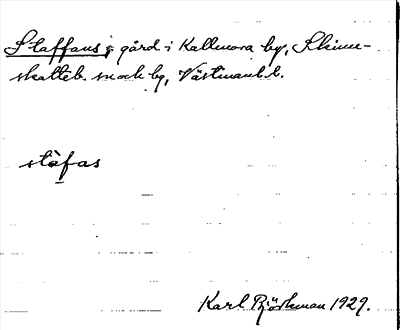 Staffans, gård i Kallmora by, Skinn-
skatteb. sn och bg, Västmanl. l.
stàfas
Karl Björkman 1929.